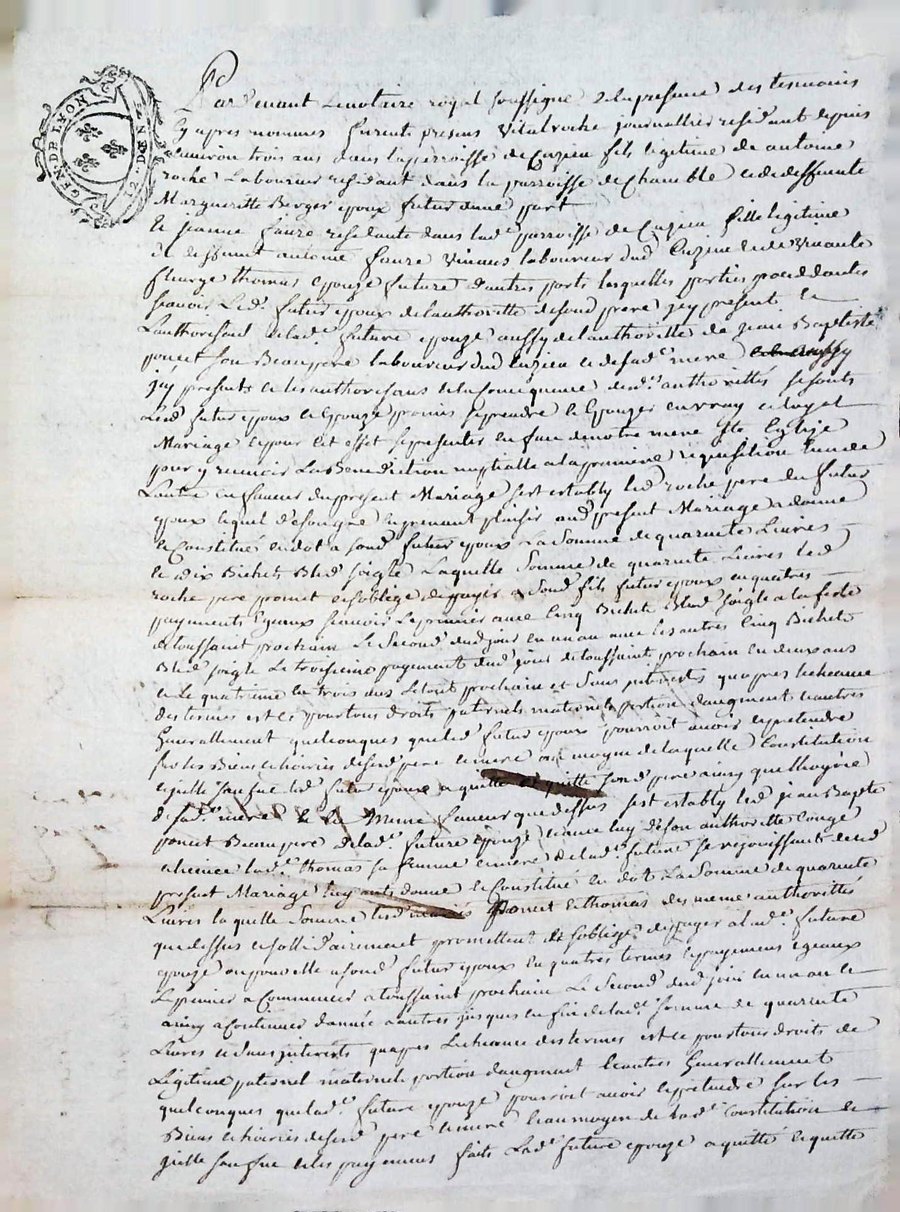 GEN. DE LYON
12 DEN
Pardevant Le notaire royal soussigne & En presence des tesmoins
Cy apres nommes furent presens Vital roche journallier residant depuis
Environ trois ans dans la parroisse de Cuzieu fils legitime de antoine
roche Laboureur residant dans la parroisse de Chamble et de deffunte
Margueritte Berger epoux futur dune part
Et jeanne faure residante dans lad.e parroisse de Cuzieu fille legitime
de deffunt antoine faure Vivans laboureur dud Cuzieu et de Vivante
fleurye thomas epouze future dautres parts lesquelles parties proceddantes
scavoir Led. futur epoux de lauthorité de sond pere jcy present et
Lauthorisant et lad.e future epouze aussy de lauthorité de jean Baptiste
poncet son Beaupere laboureur dud Cuzieu et de sad.e mere
jcy presents et les authorisans et de la Consequence desd.s authorittés se sont
Lesd futur epoux et Epouze promis se prendre et Epouzer en vray et loyal
Mariage et pour Cet effet se presenter en face de notre mere ste Eglize
pour y recevoir La Benediction nuptialle a la premiere requisition Lun de
Lautre en faveur du present Mariage sest estably led roche pere du futur
epoux lequel de son gre Enprenant plaisir aud present Mariage a donné
et Constitué en dot a sond futur epoux La Somme de quarente Livres
et dix Bichets Bled soigle Laquelle Somme de quarente Livres led
roche pere promet et soblige de payer a sond fils futur epoux en quatres
payements Egaux scavoir Le premier avec Cinq Bichets Bled soigle a la feste
de toussaint prochain Le Second dud jour en un an avec les autres Cinq Bichets
Bled soigle Le troisieme payement dud jour de toussaints prochain en deux ans
et Le quatrieme en trois ans Le tout prochain et Sans interets quapres lecheance
des termes et ce pour tous droits paternels maternels portion daugment et autres
Generallement quelconques que led futur epoux pourroit avoir et pretendre
sur les Biens et hoiries desesd pere et mere au moyen de laquelle Constitution
led futur epoux a quitte et quitte sond pere ainsy que lhoyrie
de sad.e mere En La meme faveur que dessus sest estably led jean Bapte
poncet Beaupere de lad.e future epouze et avec luy de son authorité Congé
et licence lad.e thomas sa femme et mere de lad.e future se rejouissants dud
present Mariage luy ont donné et Constitué en dot La Somme de quarente
Livres laquelle Somme lesd mariés poncet et thomas des meme authorittés
que dessus et sollidairement promettent et sobligent de payer a lad.e future
epouze ou pour elle a sond futur epoux en quatres termes et payements egeaux
Le premier a Commencer a toussaint prochain Le Second dud jour en un an et
ainsy a Continuer dannée a autres jusques en fin de lad.e somme de quarente
Livres et Sans jnterets quapres Lecheance des termes et ce pour tous droits de
Legitime paternel maternel portion daugment et autres Generallement
quelconques que lad.e future epouze pourroit avoir et pretendre sur les
Biens et hoiries desesd pere et mere et au moyen de lad.e Constitution et
faits Lad.e future epouze a quitté et quitte